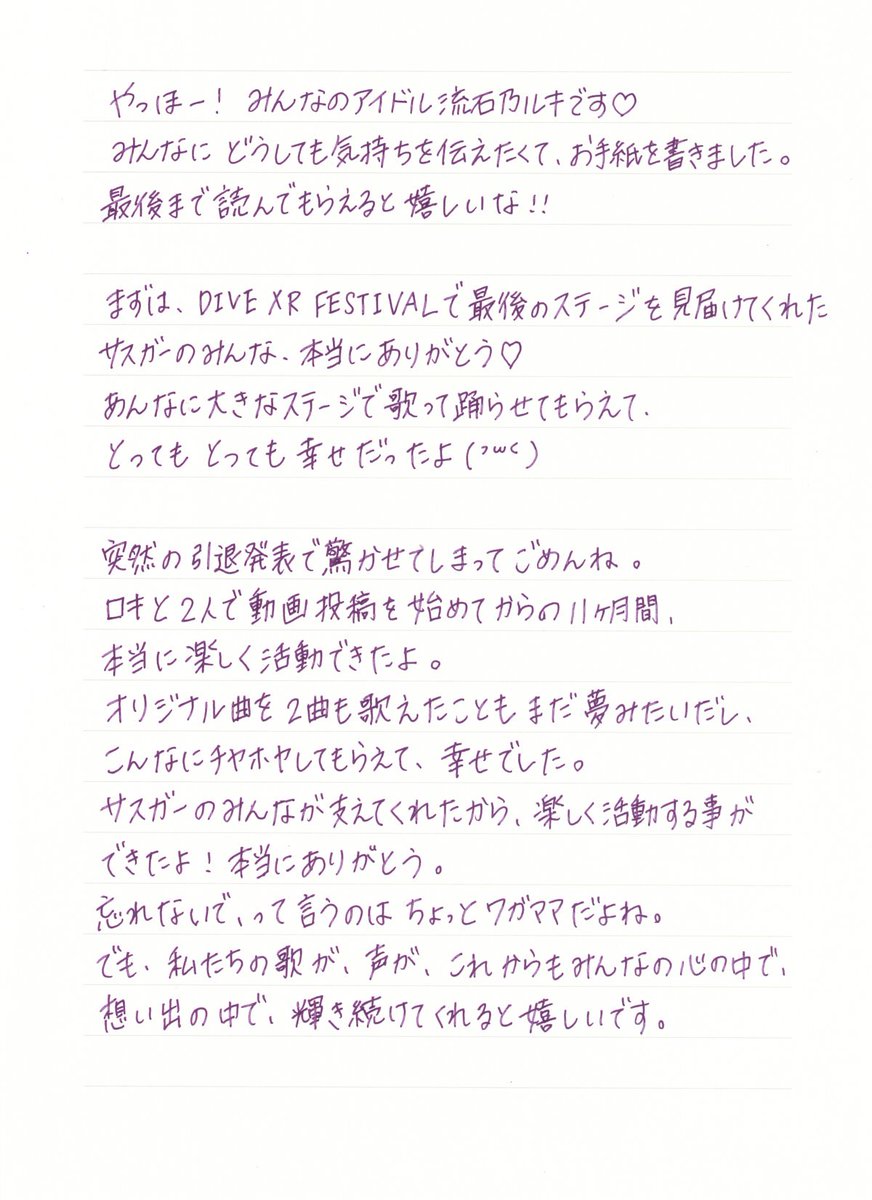 やっほー！ みんなのアイドル流石乃ルキです♡
みんなに どうしても気持ちを伝えたくて、お手紙を書きました。
最後まで読んでもらえると嬉しいな!!
まずは、DIVE XR FESTIVALで最後のステージを見届けてくれた
サスガーのみんな、本当にありがとう♡
あんなに大きなステージで歌って踊らせてもらえて、
とっても とっても 幸せだったよ(っωc)
突然の引退発表で驚かせてしまってごめんね。
ロキと2人で動画投稿を始めてからの11ヶ月間、
本当に楽しく活動できたよ。
オリジナル曲を2曲も歌えたことも まだ夢みたいだし、
こんなにチヤホヤしてもらえて、幸せでした。
サスガーのみんなが支えてくれたから、楽しく活動する事が
できたよ！本当にありがとう。
忘れないで、って言うのは ちょっとワガママだよね。
でも、私たちの歌が、声が、これからもみんなの心の中で、
想い出の中で、輝き続けてくれると嬉しいです。